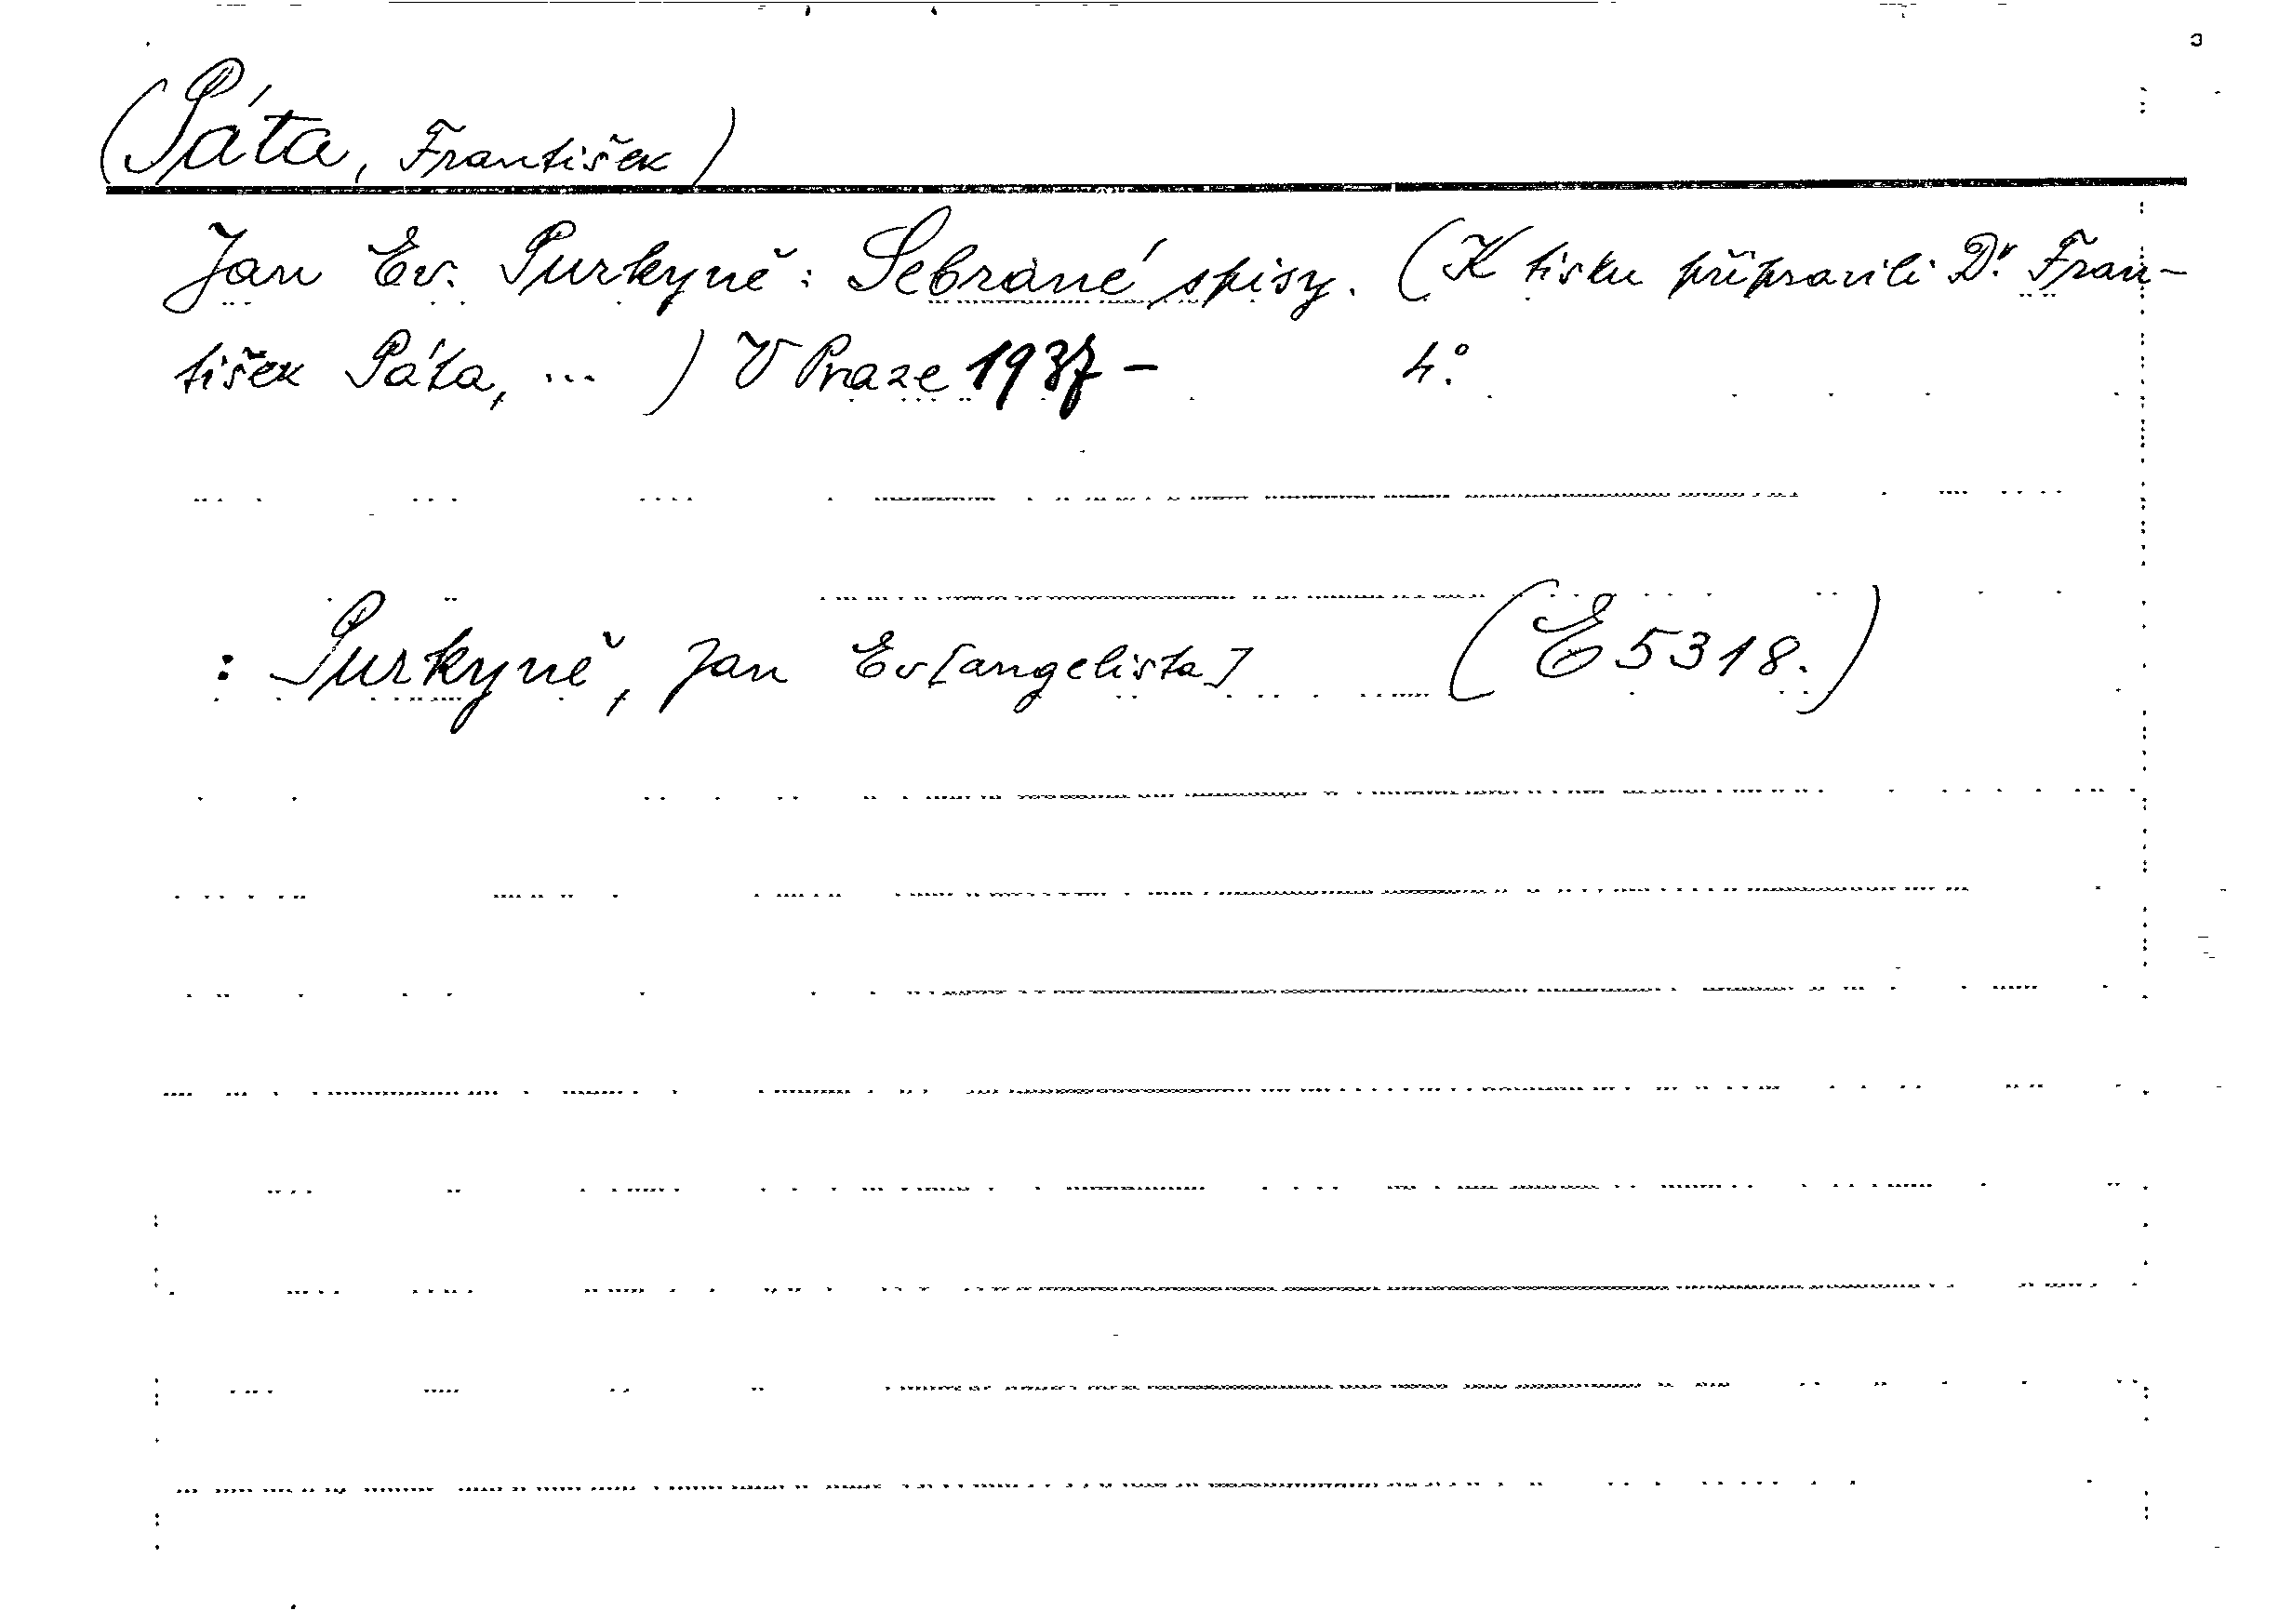 (Páta, František)
Jan Ev. Purkyně: Sebrané spisy. (K tisku připravili Dr. Fran-
tišek Páta, ...) V Praze 1937 - 4°.
: Purkyně, Jan Ev[angelista] (E 5318.)